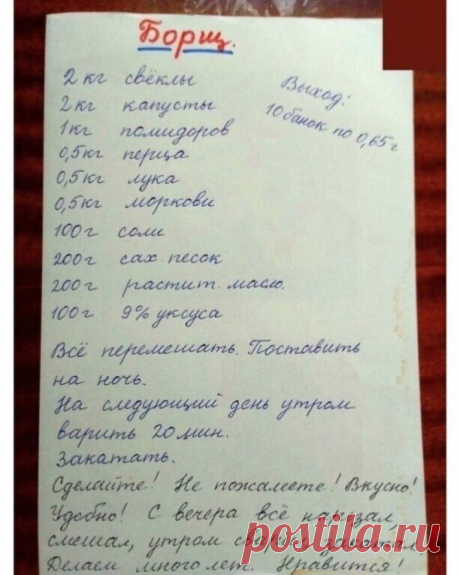 Борщ.
2 кг свёклы
2 кг капусты
1 кг помидоров
0,5 кг перца
0,5 кг лука
0,5 кг моркови
100 г соли
200 г сах. песок
200 г растит. масло.
100 г 9% уксуса
Выход:
10 банок по 0,65 г
Всё перемешать. Поставить
на ночь.
На следующий день утром
варить 20 мин.
Закатать.
Сделайте! Не пожалеете! Вкусно!
Удобно! С вечера всё нарезал
смешал, утром
Делаем много лет. Нравится!
postila.ru